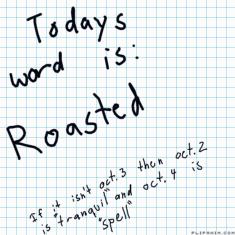 Todays
word is:
Roasted
If it isn't oct.3 then oct.2
is "tranquil" and oct.4 is
"spell"
FLIPANIM.COM